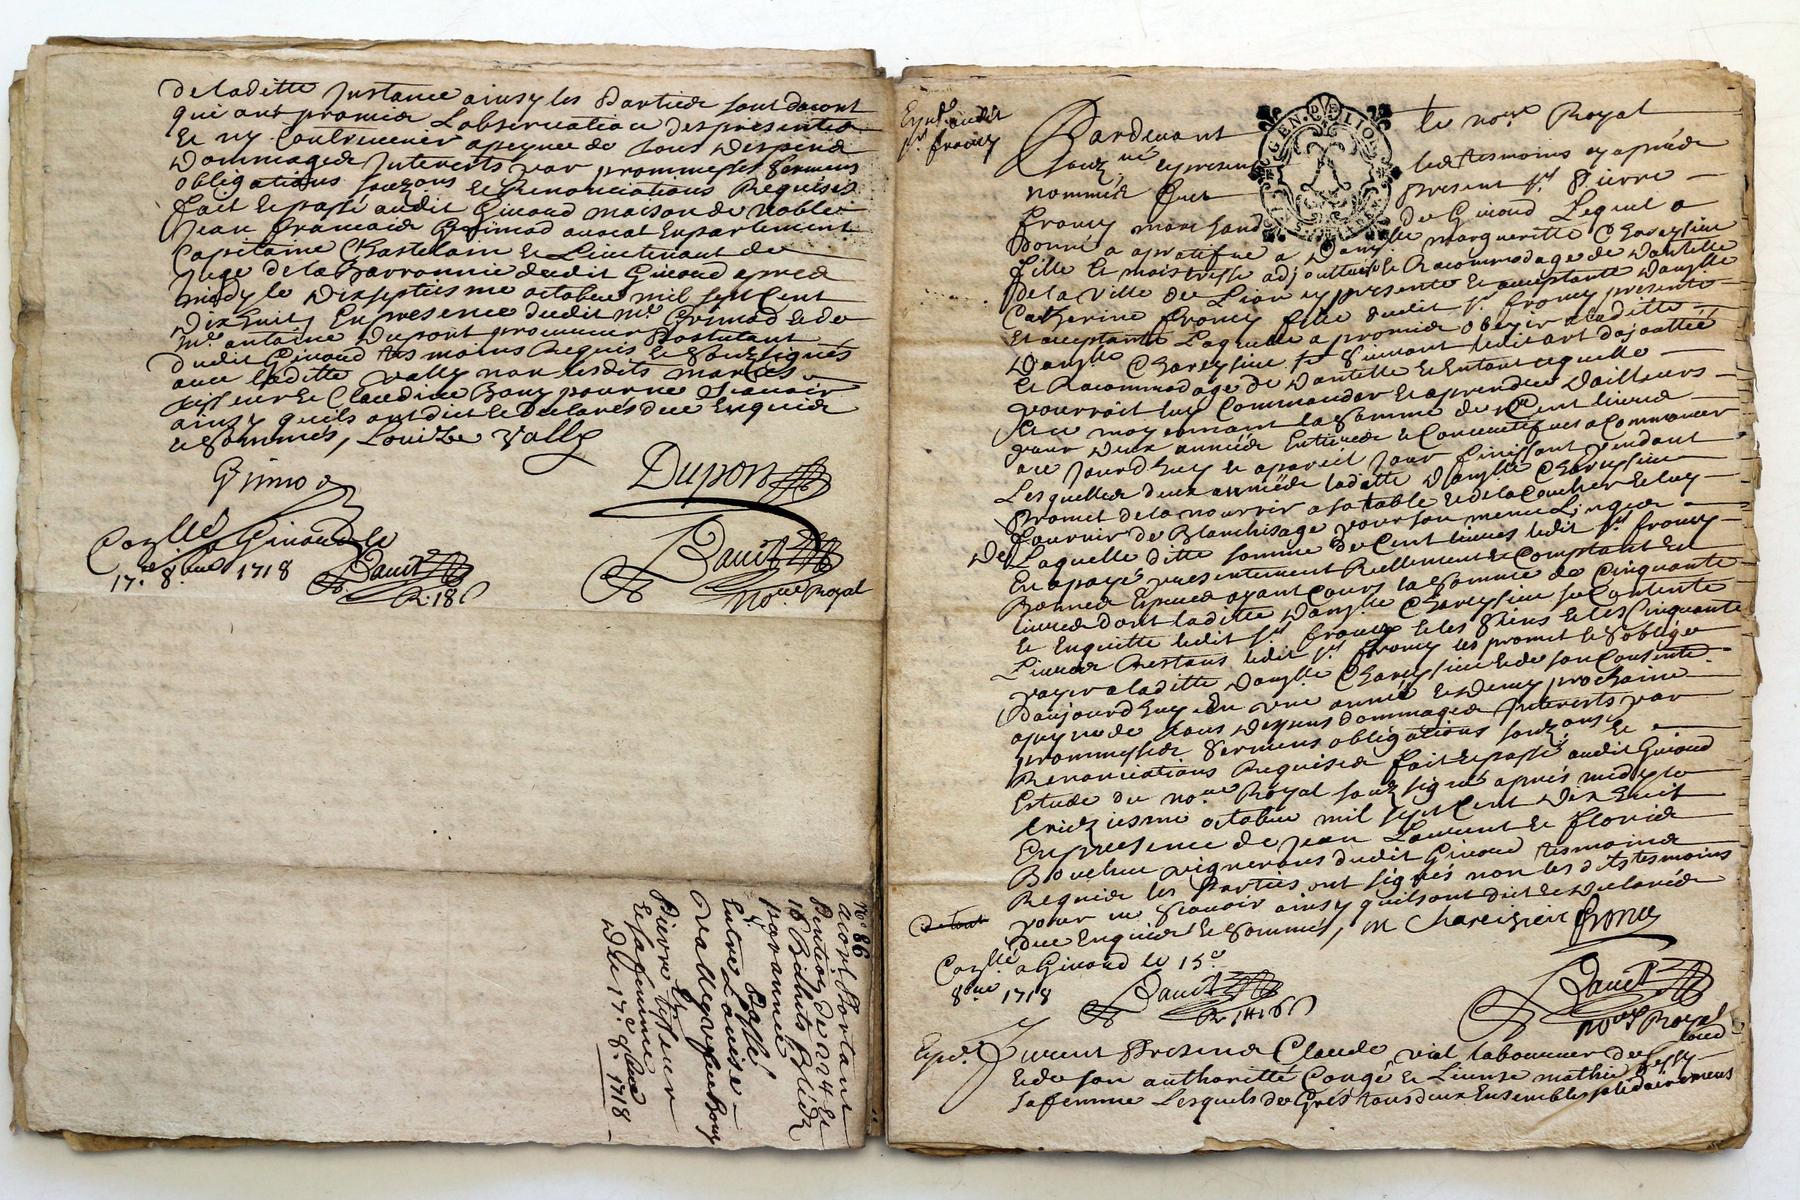 de laditte Instance ainsy les Parties sont d'acort
qui ont promis L'observation des presentes
et ny Contrevenir a peyne de tous despens
Dommages Interests par prommesses sermens
obligations souzons et Renonciations Requises
fait et passé audit Giraud maison de noble
Jean Francois Grimod avocat En parlement
Capitaine Chastelain et Lieutenant de
Juge de la Barronnie dudit Giraud apres
midy le Dixseptiesme octobre mil sept Cent
Dixhuit, En presence dudit Mr. Grimod et de
Me. antoine Dupont procureur Postulant
dudit Giraud tesmoins Requis et souzsignés
avec laditte Vally non lesdits mariés
Tisseur et Claudine Bouy pour ne sçavoir
ainsy quils ont dit et declarés de ce Enquis
et sommés, Louize Vally
Grimod
Dupont
Conllé a Giraud le
17e. 8bre 1718
Bauet
R. 18 s
Bauet
No.re Royal
No 86
acort Portant
Pention de 224 lt et
16 Bichets Bled
par année
Passé
Entre Louise
Vally veuve Bouy
Et
Pierre Tisseur
et sa femme
Du 17e 8bre 1718
Expé. audit
sr. froney
Pardevant le no.re Royal
souz.né et presens les tesmoins cy apres
nommés fut present sr. Pierre
froney marchand de Giraud Lequel a
Donné a apratisse a Damlle margueritte Chareysieu
fille et maistresse adjoutteuse et Racommodage de Dantelle
de la ville de Lion cy presente et acceptante Damlle
Catherine froney fille dudit sr. froney presente
Et acceptante Laquelle a promis obeyr a laditte
Damlle Chareysieu sr suivant ledit art d'ajouttés
et Racommodage de Dantelle et En tout ce quelle
pourroit luy Commander et aprendre D'ailleurs
Et ce moyennant la somme de Cent livres
pour deux années Entieres et Consecutifves a Commancer
a ce Jourd'huy et a pareil jour finissant pendant
Lesquelles deux années laditte Damlle Chareysieu
promet de la nourrir a sa table et de la Coucher et luy
fournir de Blanchisage pour son menu Linge
De Laquelle ditte somme de Cent livres ledit sr. froney
En a payé presentement Reellement et Comptant En
Bonnes Especes ayant Cours la somme de Cinquante
livres dont laditte Damlle Chareysieu se Contente
et En quitte ledit sr. froney et les siens et les Cinquante
Livres Restans ledit sr. froney les promet et s'oblige
payer a laditte Damlle Chareysieu et de son Consente.
D'aujourd'huy En une année et demy prochaine
a peyne de tous despens dommages Interests par
prommesses sermens obligations souzons et
Renonciations Requises fait et passé audit Giraud
Estude du no.re Royal souzsigné aprés midy le
treiziesme octobre mil sept Cent Dixhuit
En presence de Jean Laurent et floris
Bouchu vignerons dudit Giraud tesmoins
Requis les Parties ont signés non lesdits tesmoins
pour ne sçavoir ainsy quils ont dit et declarés
de ce Enquis et sommés, M Chareizieu froney
Conllé a Giraud le 15e.
8bre 1718
Bauet
R. 14 s 6 d
Bauet
no.re Royal
Expé.
Furent Presens Claude Vial laboureur de
et de son authoritté Congé et License mathie
sa femme Lesquels de Gres tous deux Ensembles solidairement